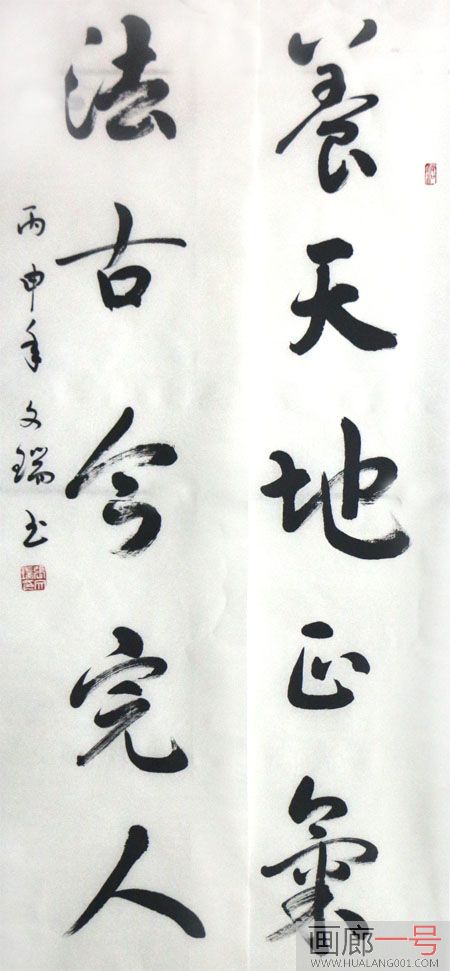 養天地正氣
法古今完人
丙申年文瑞书
画廊一号
WWW.HUALANG001.COM